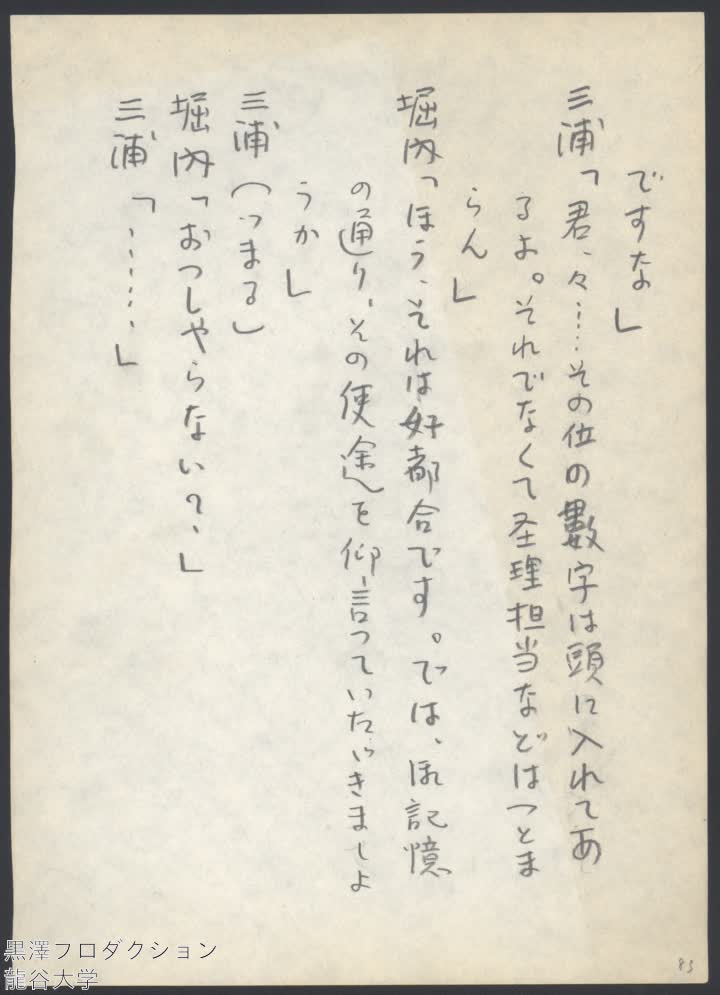 ですな」
三浦「君、々……その位の數字は頭に入れてあ
るよ。それでなくて圣理担当などはつとま
らん」
堀内「ほう、それは好都合です。では、御記憶
の通り、その使途を仰言つていたゞきましよ
うか」
三浦（つまる）
堀内「おつしやらない？、」
三浦「……、」
83
黒澤プロダクション
龍谷大学